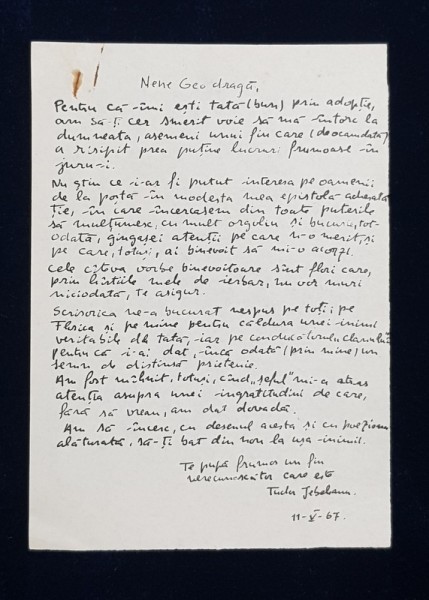 Nene Geo dragă,
Pentru că-îmi ești tată (bun) prin adopție,
am să-ți cer smerit voie să mă întorc la
dumneata, asemeni unui fiu care (deocamdată)
a risipit prea puține lucruri frumoase în
juru-i.
Nu știm ce i-ar fi putut interesa pe oamenii
de la poștă în modesta mea epistolă
ție, în care încercasem din toate puterile
să mulțumesc, cu mult orgoliu și bucurie, tot-
odată, gingașei atenții pe care n-o merit, și
pe care, totuși, ai binevoit să mi-o acorzi.
Cele câteva vorbe binevoitoare sînt flori care,
prin hîrtiile mele de ierbar, nu vor muri
niciodată, te asigur.
Scrisorica ne-a bucurat nespus pe toți: pe
Florica și pe mine pentru căldura unei inimi
veritabile de tată, iar pe conducătorul
pentru că i-ai dat, încă odată (prin mine) un
semn de distinsă prietenie.
Am fost mîhnit, totuși, cînd „șeful" mi-a atras
atenția asupra unei ingratitudini de care,
fără să vreau, am dat dovadă.
Am să încerc, cu desenul acesta și cu poezioara
alăturată, să-ți bat din nou la ușa inimii.
Te pupă frumos un fiu
nerecunoscător care este
Tudor Jebeleanu.
11-V-67.